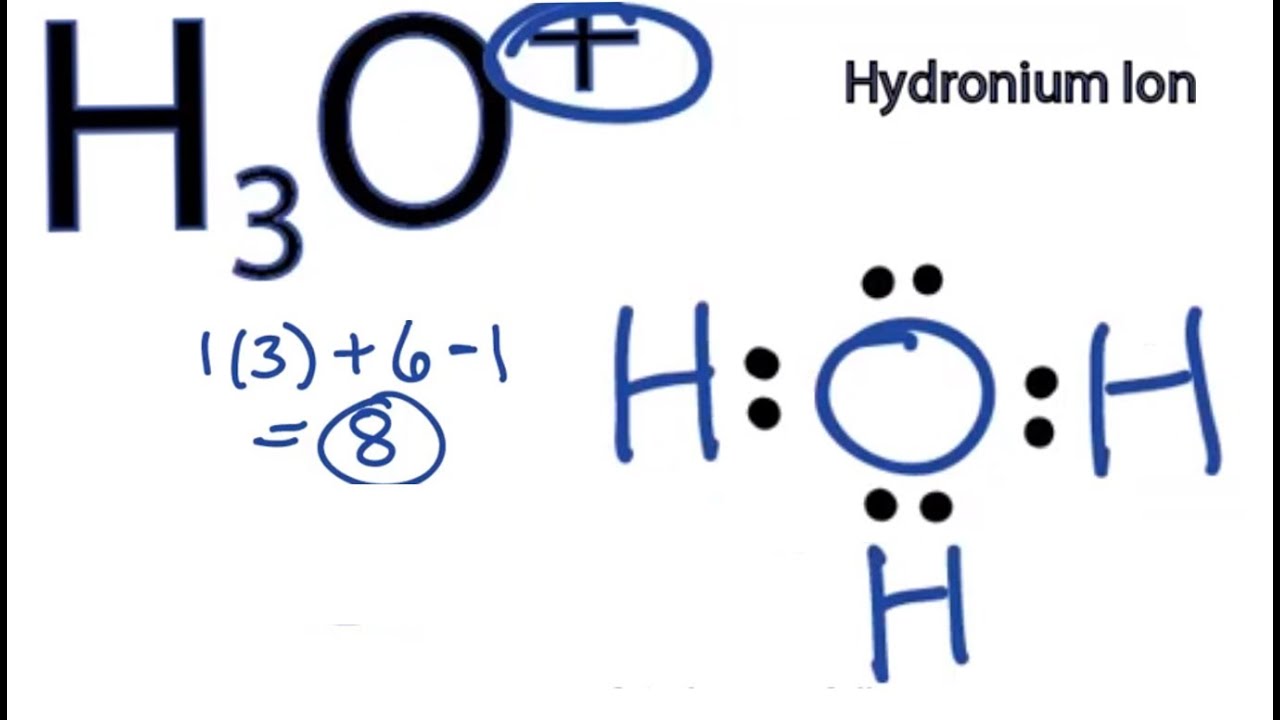 H₃O⁺
Hydronium Ion
1(3) + 6 - 1
= 8
H : O : H
H